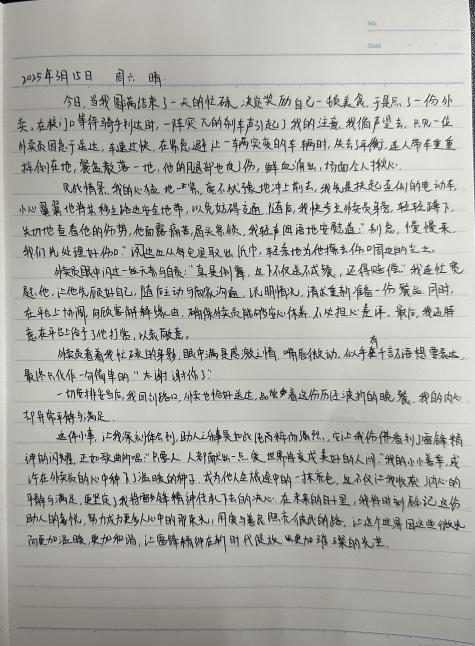 No.
Date
2025年3月15日 周六 晴
今日,当我圆满结束了一天的忙碌,决定奖励自己一顿美食,于是点了一份外
卖,在校门口等待骑手到达时,一阵突兀的刹车声引起了我的注意,我循声望去,只见一位
外卖员因急于送达,车速过快,在紧急避让一车辆突变的车辆时,失去了平衡,连人带车重重
摔倒在地,餐盒散落一地,他的腿部也受了伤,鲜血渗出,场面令人揪心。
见此情景,我的心猛地一紧,毫不犹豫地冲上前去,我先是扶起歪倒的电动车,
小心翼翼地将其移至路边安全地带,以免妨碍交通,随后,我快步至外卖员身旁,轻轻蹲下,
关切地查看他的伤势,他面露痛苦,眉头紧锁,我轻声细语地安慰道:“别急,慢慢来,
我们先处理好伤口。”同边从包里取出纸巾,轻柔地为他擦去伤口周边的尘土。
外卖员眼中闪过一丝无奈与自责:“真是倒霉,这下不仅送不成餐,还得赔偿。”我连忙宽
慰他,让他先顾好自己,随后主动与商家沟通,说明情况,请求重新准备一份餐品,同时,
在平台上协调,向顾客解释缘由,确保外卖员能够安心休养,不必担心差评。最后,我还特
意在平台上给了他打赏,以表敬意。
外卖员看着我忙碌的身影,眼中满是感激之情,嘴唇微动,似乎有千言万语想要表达,
最终只化作一句简单的“太谢谢你了”
一切安排妥当后,我回到路口,外卖也恰好送达,品尝着这份历经波折的晚餐,我的内心
却异常平静与满足。
这件小事,让我深刻体会到,助人之事是如此纯粹而强烈,它让我仿佛看到了雷锋精
神的闪耀,正如歌曲所唱:“只要人人都献出一点爱,世界将变成美好的人间。”我的小小善举,或
许在外卖员的心中种下了温暖的种子,成为他人生旅途中的一抹亮色,这不仅让我收获了内心的
平静与满足,更坚定了我将雷锋精神传承下去的决心。在未来的日子里,我将时刻铭记这份
助人的喜悦,努力成为更多人心中的那束光,用爱与善良照亮彼此的路,让这个世界因这些微光
而更加温暖,更加和谐,让雷锋精神在新时代绽放出更加璀璨的光芒。